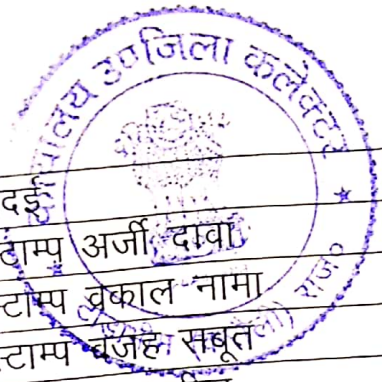 कार्यालय उपजिला कलेक्टर
दई
टाम्प अर्जी दावा
स्टाम्प वकाल नामा
राज०
स्टाम्प वजह सबूत